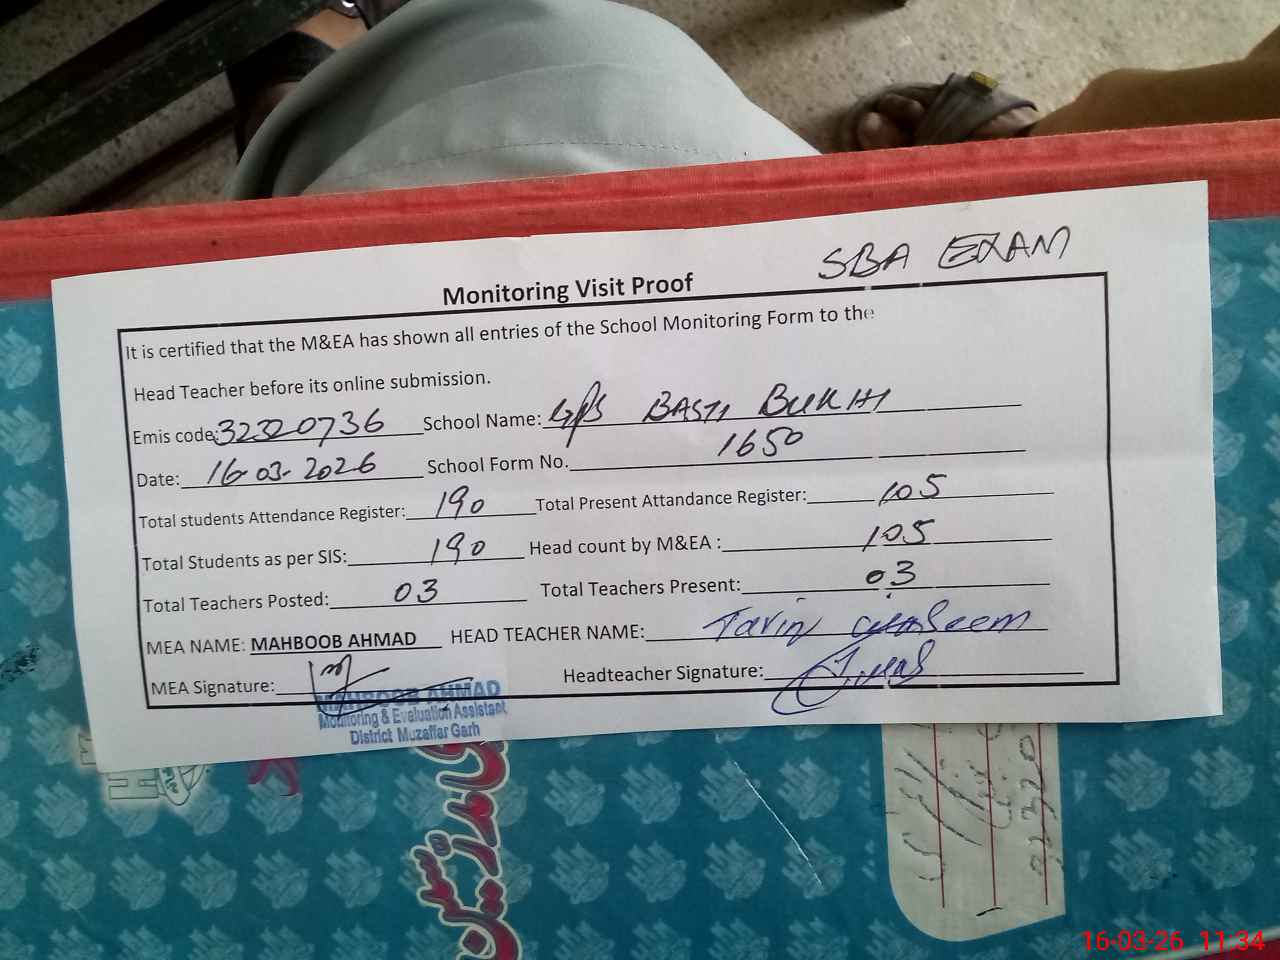 SBA EXAM
Monitoring Visit Proof
It is certified that the M&EA has shown all entries of the School Monitoring Form to the
Head Teacher before its online submission.
Emis code: 32320736 School Name: GPS BASTI BUKHI
Date: 16-03-2026 School Form No. 1650
Total students Attendance Register: 190 Total Present Attandance Register: 105
Total Students as per SIS: 190 Head count by M&EA : 105
Total Teachers Posted: 03 Total Teachers Present: 03
MEA NAME: MAHBOOB AHMAD HEAD TEACHER NAME:
MEA Signature: Headteacher Signature:
MAHBOOB AHMAD
Monitoring & Evaluation Assistant
District Muzaffar Garh
16-03-26 11:34